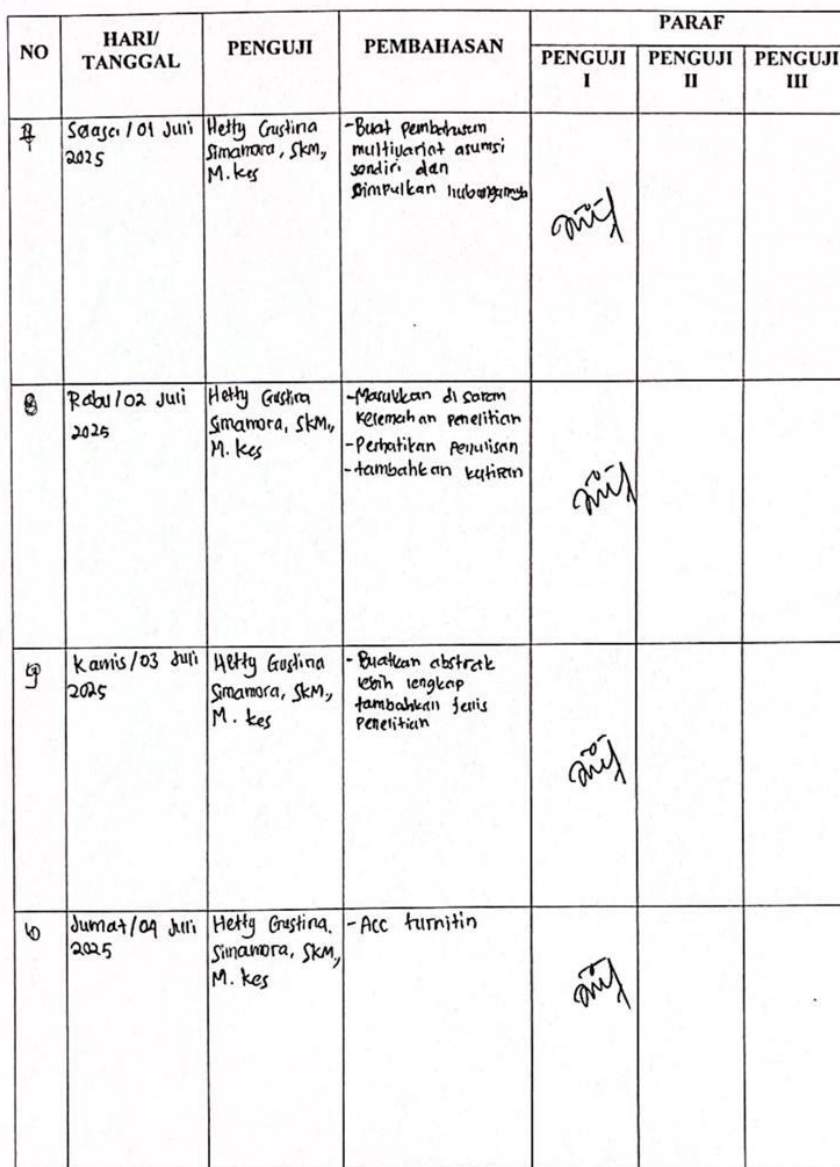 NO HARI/ TANGGAL PENGUJI PEMBAHASAN PARAF
PENGUJI I PENGUJI II PENGUJI III
Selasa / 01 Juli 2025
Hetty Gustina
Simamora, SKM.,
M. kes
- Buat pembahasan
multivariat asumsi
sendiri dan
simpulkan hubungannya
8
Rabu / 02 Juli
2025
Hetty Gustina
Simamora, SKM.,
M. kes
- Masukkan di saran
kelemahan penelitian
- Perhatikan Penulisan
- tambahkan kutipan
9
Kamis / 03 Juli
2025
Hetty Gustina
Simamora, SKM.,
M. kes
- Buatkan abstrak
lebih lengkap
tambahkan jenis
Penelitian
Jumat / 04 Juli
2025
Hetty Gustina.
Simamora, SKM.,
M. kes
- Acc turnitin